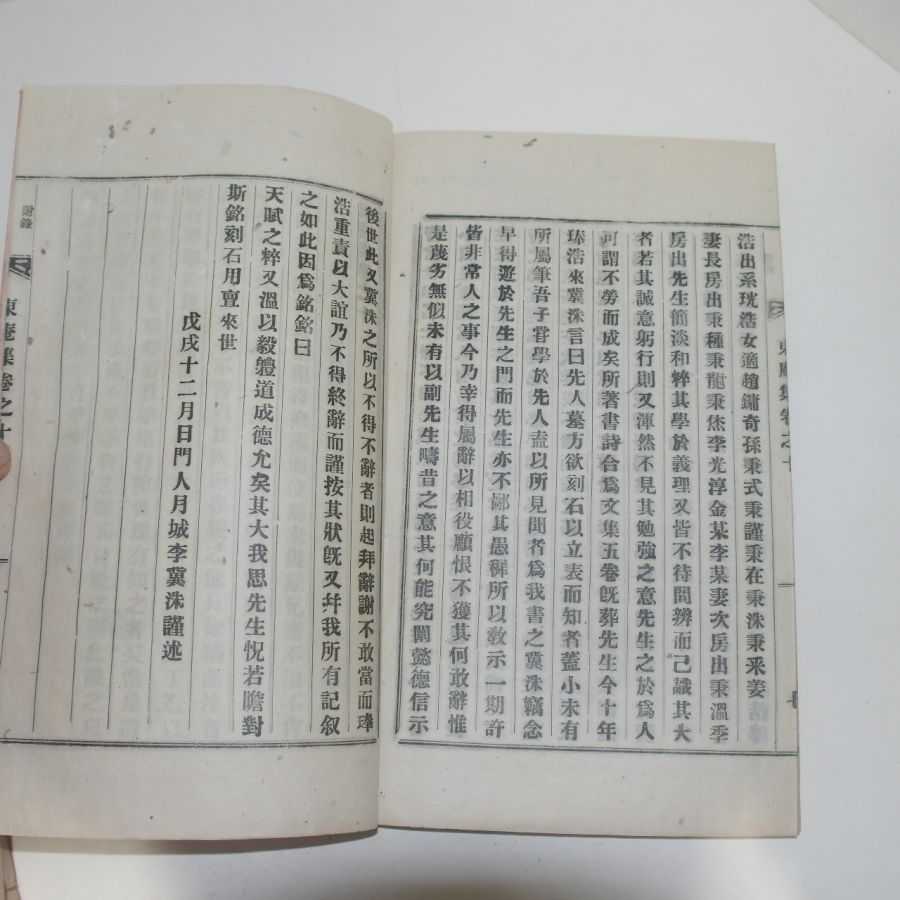 浩出系珖浩女適趙鏞奇孫秉式秉謹秉在秉洙秉釆姜
妻長房出秉種秉龍秉烋李光淳金某李某妻次房出秉溫季
房出先生簡淡和粹其學於義理又皆不待問辨而已識其大
者若其誠意躬行則又渾然不見其勉強之意先生之於爲人
可謂不勞而成矣所著書詩合爲文集五卷旣葬先生今十年
琫浩來冀洙言曰先人墓方欲刻石以立表而知者蓋小未有
所屬筆吾子甞學於先人盍以所見聞者爲我書之冀洙竊念
早得遊於先生之門而先生亦不鄙其愚穉所以敎示一期許
皆非常人之事今乃幸得屬辭以相役顧恨不獲其何敢辭惟
是蔑劣無似未有以副先生疇昔之意其何能究闡懿德信示
後世此又冀洙之所以不得不辭者則起拜辭謝不敢當而琫
浩重責以大誼乃不得終辭而謹按其狀旣又幷我所有記叙
之如此因爲銘銘曰
天賦之粹又溫以毅體道成德允矣其大我思先生怳若瞻對
斯銘刻石用亶來世
戊戌十二月日門人月城李冀洙謹述
附錄
東庵集卷之十